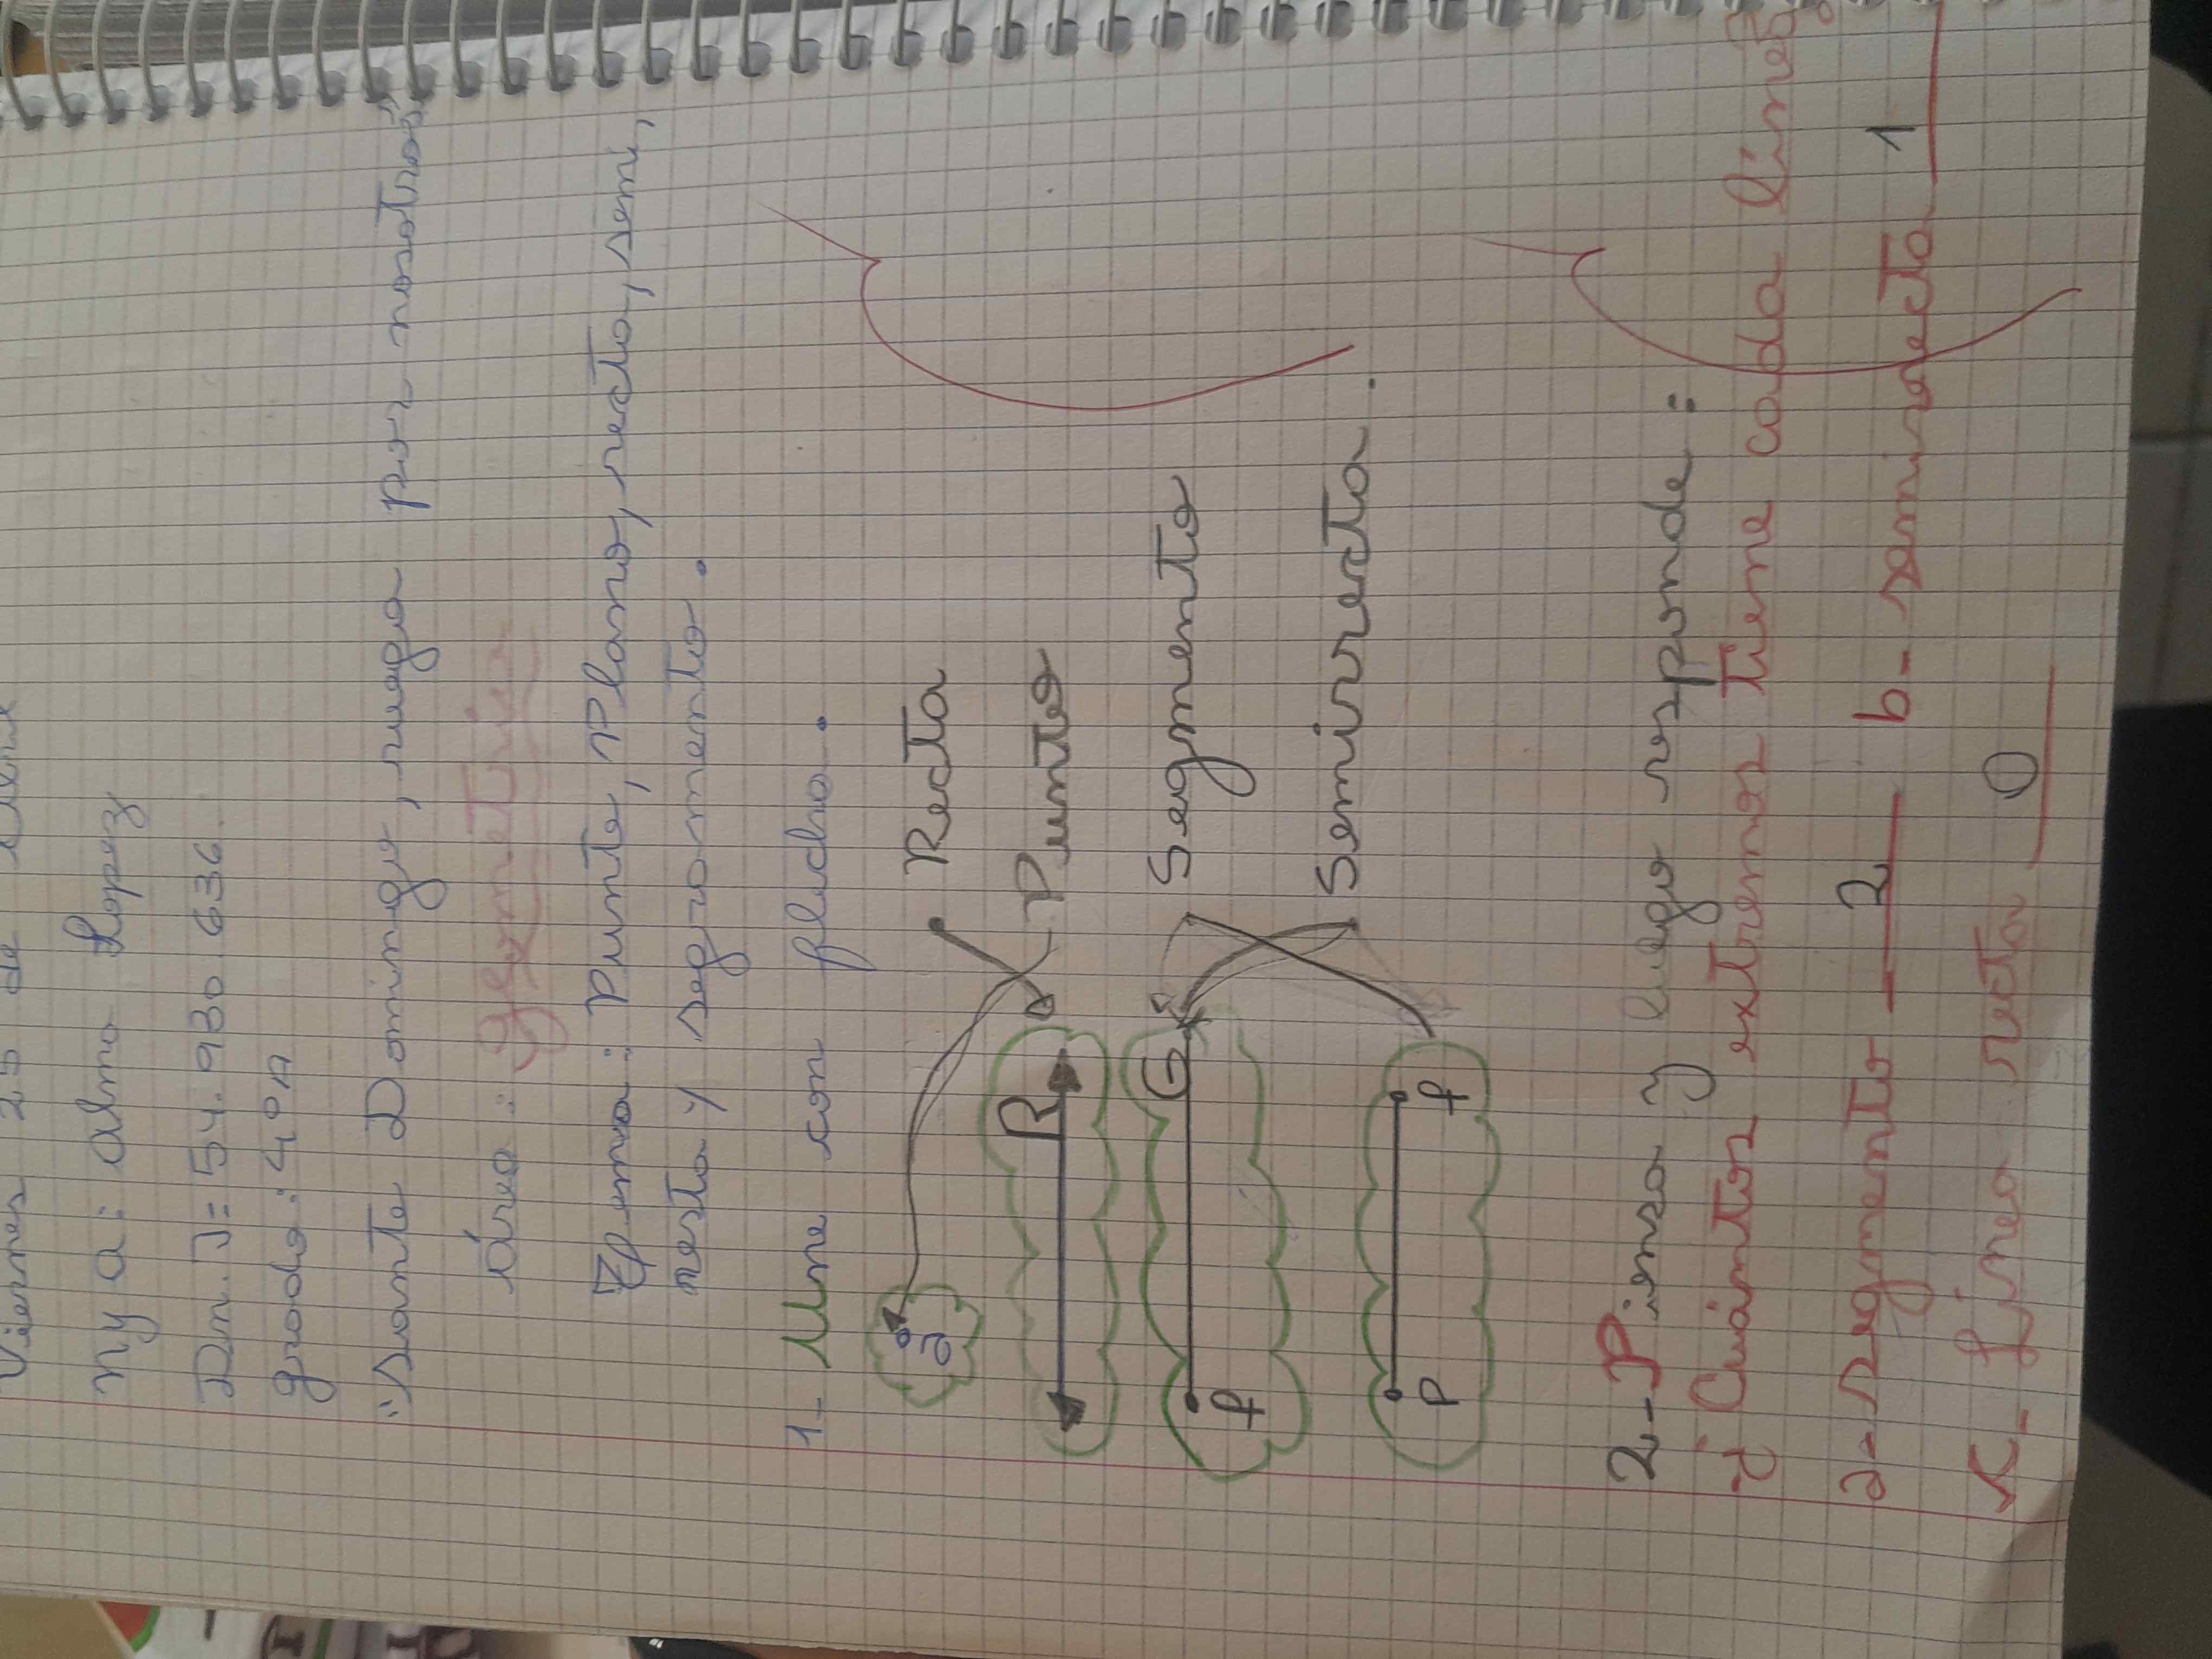 Viernes 25 de
n y a: alma Lopez
Dn.J= 54.930.636
grado: 4°A
"Santo Domingo, ruega por nosotros"
área: geometria
Tema: Punto, Plano, recta, semi,
recta y segmento.
1- Une con flecha.
a
Recta
R
Punto
G
P
Segmento
P
P
Semirrecta.
2-Pienso y luego responde:
¿Cuántos extremos tiene cada línea?
a-segmento 2 b- semirrecta 1
c- línea recta 0